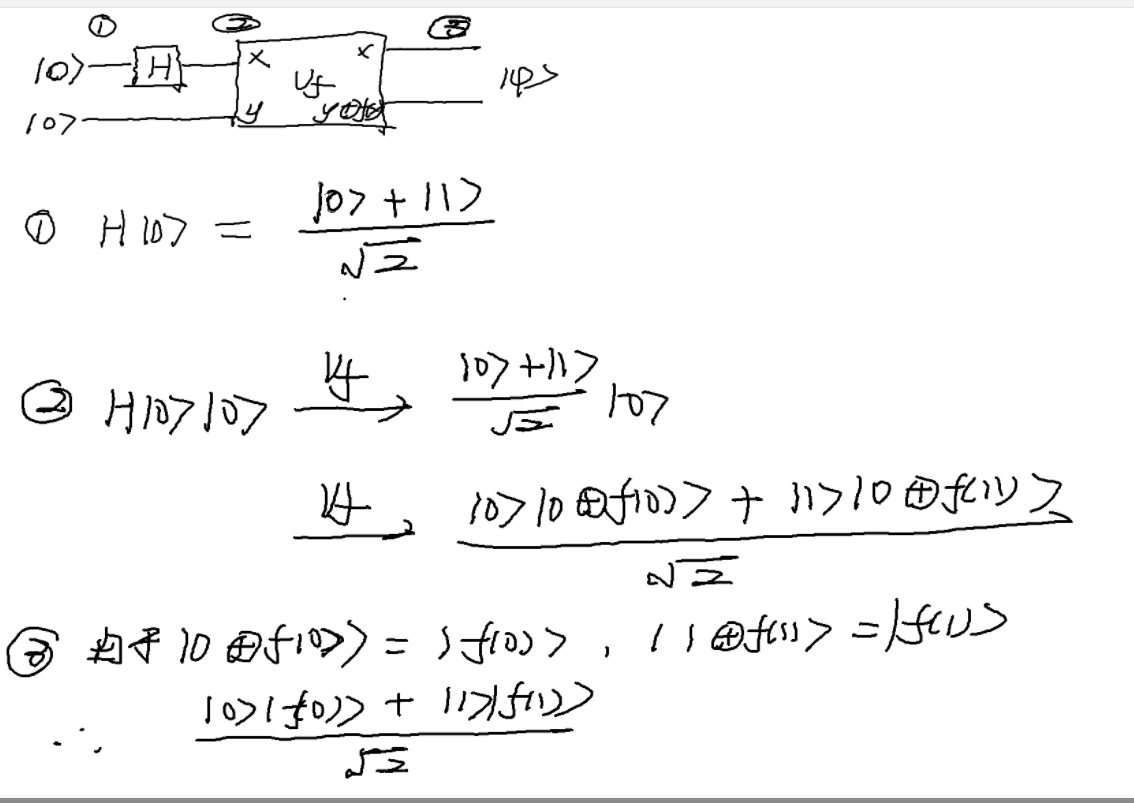 ① ② ③
|0> H x x
U_f |φ>
|0> y y⊕f(x)
① H|0> = (|0> + |1>)/√2
② H|0>|0> —U_f→ (|0> + |1>)/√2 |0>
—U_f→ (|0>|0⊕f(0)> + |1>|0⊕f(1)>)/√2
③ 由于 |0⊕f(0)> = |f(0)>, |1⊕f(1)> = |f(1)>
∴ (|0>|f(0)> + |1>|f(1)>)/√2